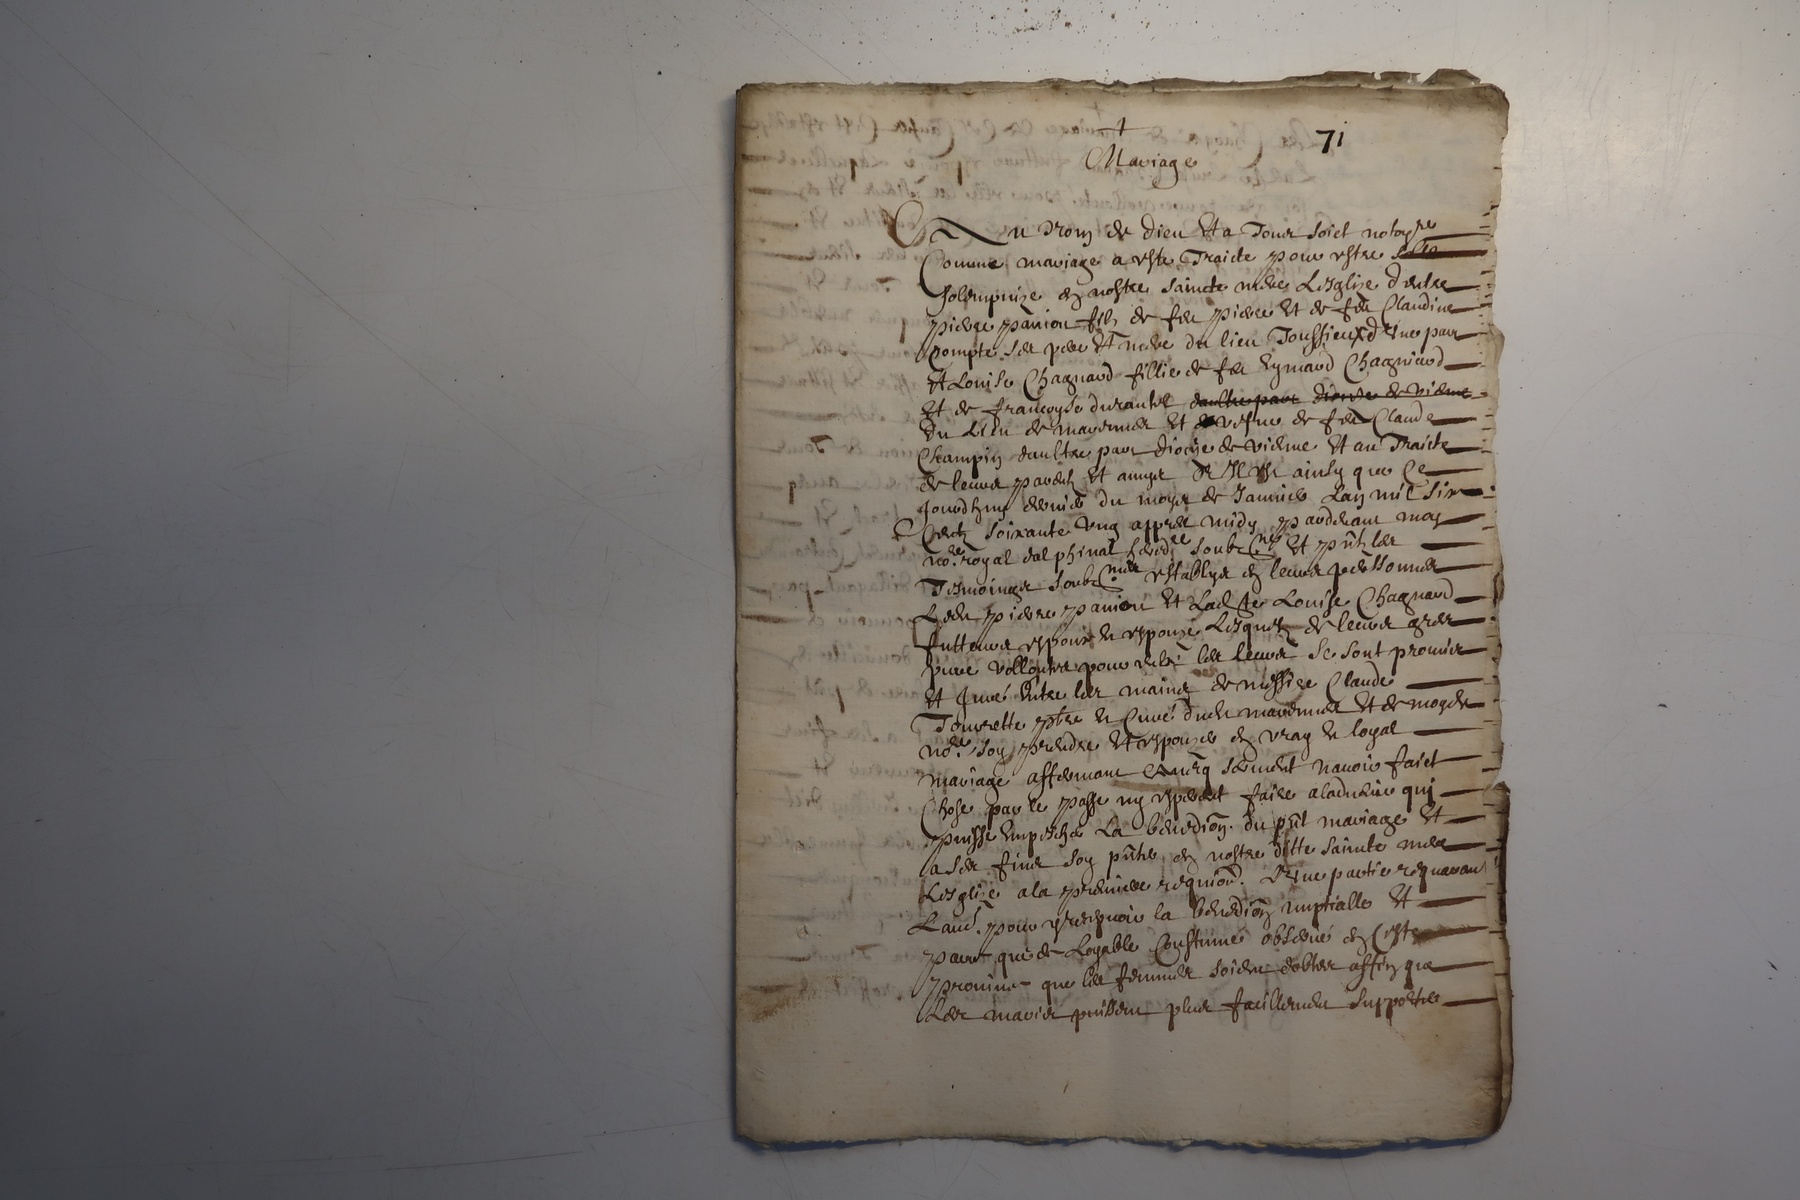 71
Mariage
Au Nom de dieu Et a Tous soict notoyre
Comme mariage a este Traicte pour estre
solempnize en nostre saincte mere Lesglize dentre
pierre panion filz de feu pierre Et de feu Claudine
Compte ses pere Et mere du lieu Toussieux dune part
Et Louise Chagnard fillie de feu Eymard Chagniard
Et de francoyse durantel daultre part dioceze de vienne
du Lieu de marennes Et vesfve de feu Claude
Champin daultre part dioceze de vienne Et au Traicte
de leurs parents Et amys ainsy que Ce
Jourdhuy dernier du moys de Janvier Lan mil six
Centz soixante ung appres midy pardevant moy
nore royal dalphinal heredre soubzne Et pnts les
Tesmoings soubznes establys en leurs personnes
Ledit pierre panion Et Ladte Louise Chagnard
futteurs espoux Et espouze Lesquelz de leurs gres
pure vollontes pour eulx Et les leurs Se sont promis
Et Jure Entre les mains de messire Claude
Tourette pbre Et Cure dudit marennes Et de moydit
nore soy prendre Et espouzer en vray Et loyal
mariage affermant serment navoir faict
Chose par le passe ny esperent faire aladvenir qui
puisse Empescher La benedion du pnt mariage Et
a ses fins soy pnter en nostre ditte saincte mere
Lesglize a la premiere requion dune partie requerant
Laue pour y recepvoir la benedion nuptialle Et
parce que de Loyable Coustume observe en Ceste
province que les femmes soient dottes affin que
Les maris puissent plus facillement supporter